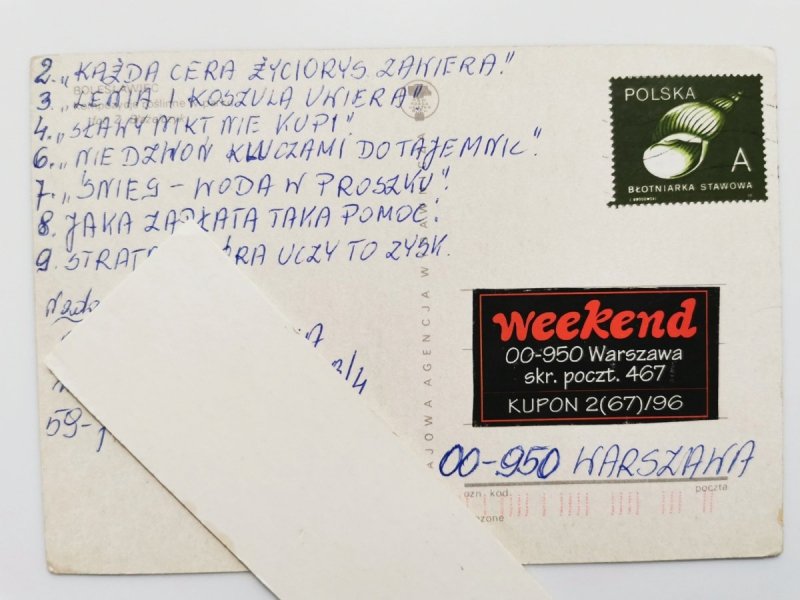 2. „KAŻDA CERA ŻYCIORYS ZAWIERA."
3. „LENIA I KOSZULA UWIERA"
4. „SŁAWY NIKT NIE KUPI".
6. „NIE DZWOŃ KLUCZAMI DO TAJEMNIC".
7. „ŚNIEG – WODA W PROSZKU".
8. JAKA ZAPŁATA TAKA POMOC.
9. UCZY TO ZYSK.
59-1
BOLESŁAWIEC
POLSKA
A
BŁOTNIARKA STAWOWA
weekend
00-950 Warszawa
skr. poczt. 467
KUPON 2(67)/96
00-950 WARSZAWA
poczta
AJOWA AGENCJA W